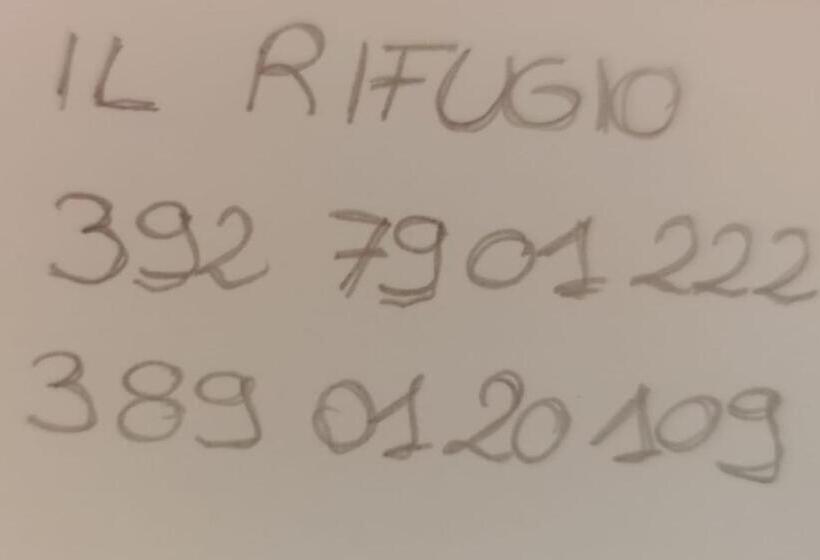 IL RIFUGIO
392 7901222
389 0120109